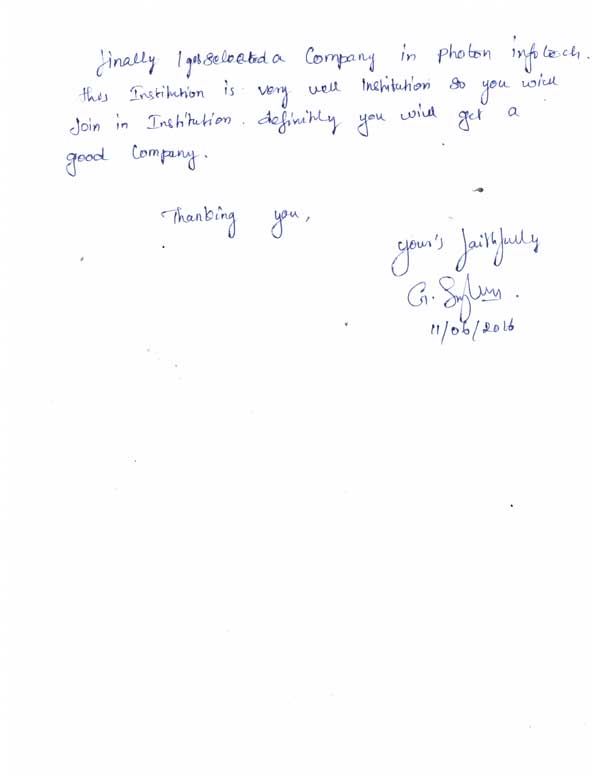 finally I got selected a Company in photon infotech.
this Institution is very well Institution so you will
Join in Institution. definitly you will get a
good Company.
Thanking you,
your's faithfully
G.
11/06/2016